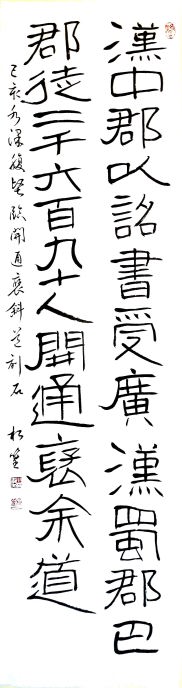 漢中郡以詔書受廣漢蜀郡巴
郡徒二千六百九十人開通褒余道
己亥 臨開通褒斜道刻石 松